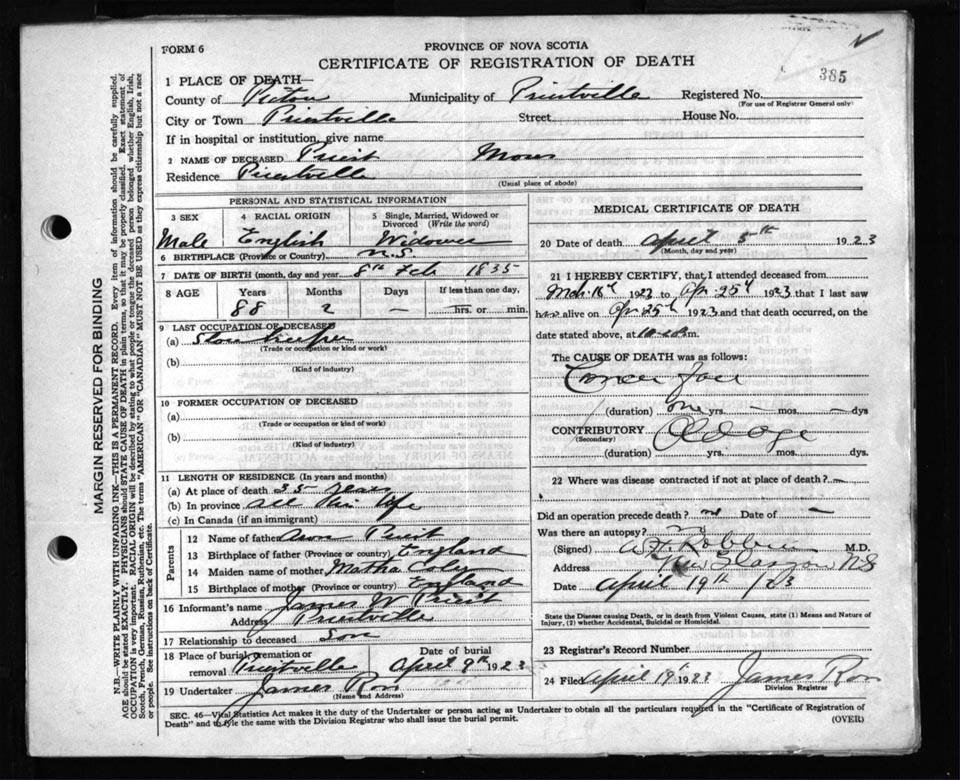 385
FORM 6
PROVINCE OF NOVA SCOTIA
CERTIFICATE OF REGISTRATION OF DEATH
1 PLACE OF DEATH—
County of Pictou Municipality of Priestville Registered No.
(For use of Registrar General only)
City or Town Priestville Street House No.
If in hospital or institution, give name
2 NAME OF DECEASED Priest Moses
Residence Priestville
(Usual place of abode)
PERSONAL AND STATISTICAL INFORMATION
3 SEX 4 RACIAL ORIGIN 5 Single, Married, Widowed or Divorced (Write the word)
Male English Widower
6 BIRTHPLACE (Province or Country) N.S.
7 DATE OF BIRTH (month, day and year) 8th Feb 1835
8 AGE Years Months Days If less than one day,
88 2 — hrs. or min.
9 LAST OCCUPATION OF DECEASED
(a)
(Trade or occupation or kind or work)
(b)
(Kind of industry)
10 FORMER OCCUPATION OF DECEASED
(a)
(Trade or occupation or kind of work)
(b)
(Kind of industry)
11 LENGTH OF RESIDENCE (In years and months)
(a) At place of death 35 years
(b) In province all his life
(c) In Canada (if an immigrant)
Parents
12 Name of father Priest
13 Birthplace of father (Province or country) England
14 Maiden name of mother Matha
15 Birthplace of mother (Province or Country) England
16 Informant's name James W Priest
Address Priestville
17 Relationship to deceased Son
18 Place of burial, cremation or removal Priestville
Date of burial
April 9th 1923
19 Undertaker James Ross
(Name and Address)
MEDICAL CERTIFICATE OF DEATH
20 Date of death April 5th 1923
(Month, day and year)
21 I HEREBY CERTIFY, that I attended deceased from
1923 to 1923 that I last saw
alive on 1923 and that death occurred, on the
date stated above, at m.
The CAUSE OF DEATH was as follows:
Cancer Face
(duration) one yrs. — mos. — dys
CONTRIBUTORY Old age
(Secondary)
(duration) yrs. mos. dys
22 Where was disease contracted if not at place of death?
Did an operation precede death? no Date of —
Was there an autopsy?
(Signed) M.D.
Address New Glasgow NS
Date April 19th /23
State the Disease causing Death, or in death from Violent Causes, state (1) Means and Nature of
Injury, (2) whether Accidental, Suicidal or Homicidal.
23 Registrar's Record Number
24 Filed April 19th 1923 James Ross
Division Registrar
SEC. 46—Vital Statistics Act makes it the duty of the Undertaker or person acting as Undertaker to obtain all the particulars required in the "Certificate of Registration of
Death" and to fyle the same with the Division Registrar who shall issue the burial permit.
(OVER)
MARGIN RESERVED FOR BINDING
N.B.—WRITE PLAINLY WITH UNFADING INK—THIS IS A PERMANENT RECORD. Every item of information should be carefully supplied.
AGE should be stated EXACTLY. PHYSICIANS should STATE CAUSE OF DEATH in plain terms, so that it may be properly classified. Exact statement of
OCCUPATION is very important. RACIAL ORIGIN will be described by stating to what people or tongue the deceased person belonged whether English, Irish,
Scotch, French, German, Russian, Ruthenian, etc. The terms "AMERICAN" OR "CANADIAN" MUST NOT BE USED as they express citizenship but not a race
or people. See instructions on back of Certificate.